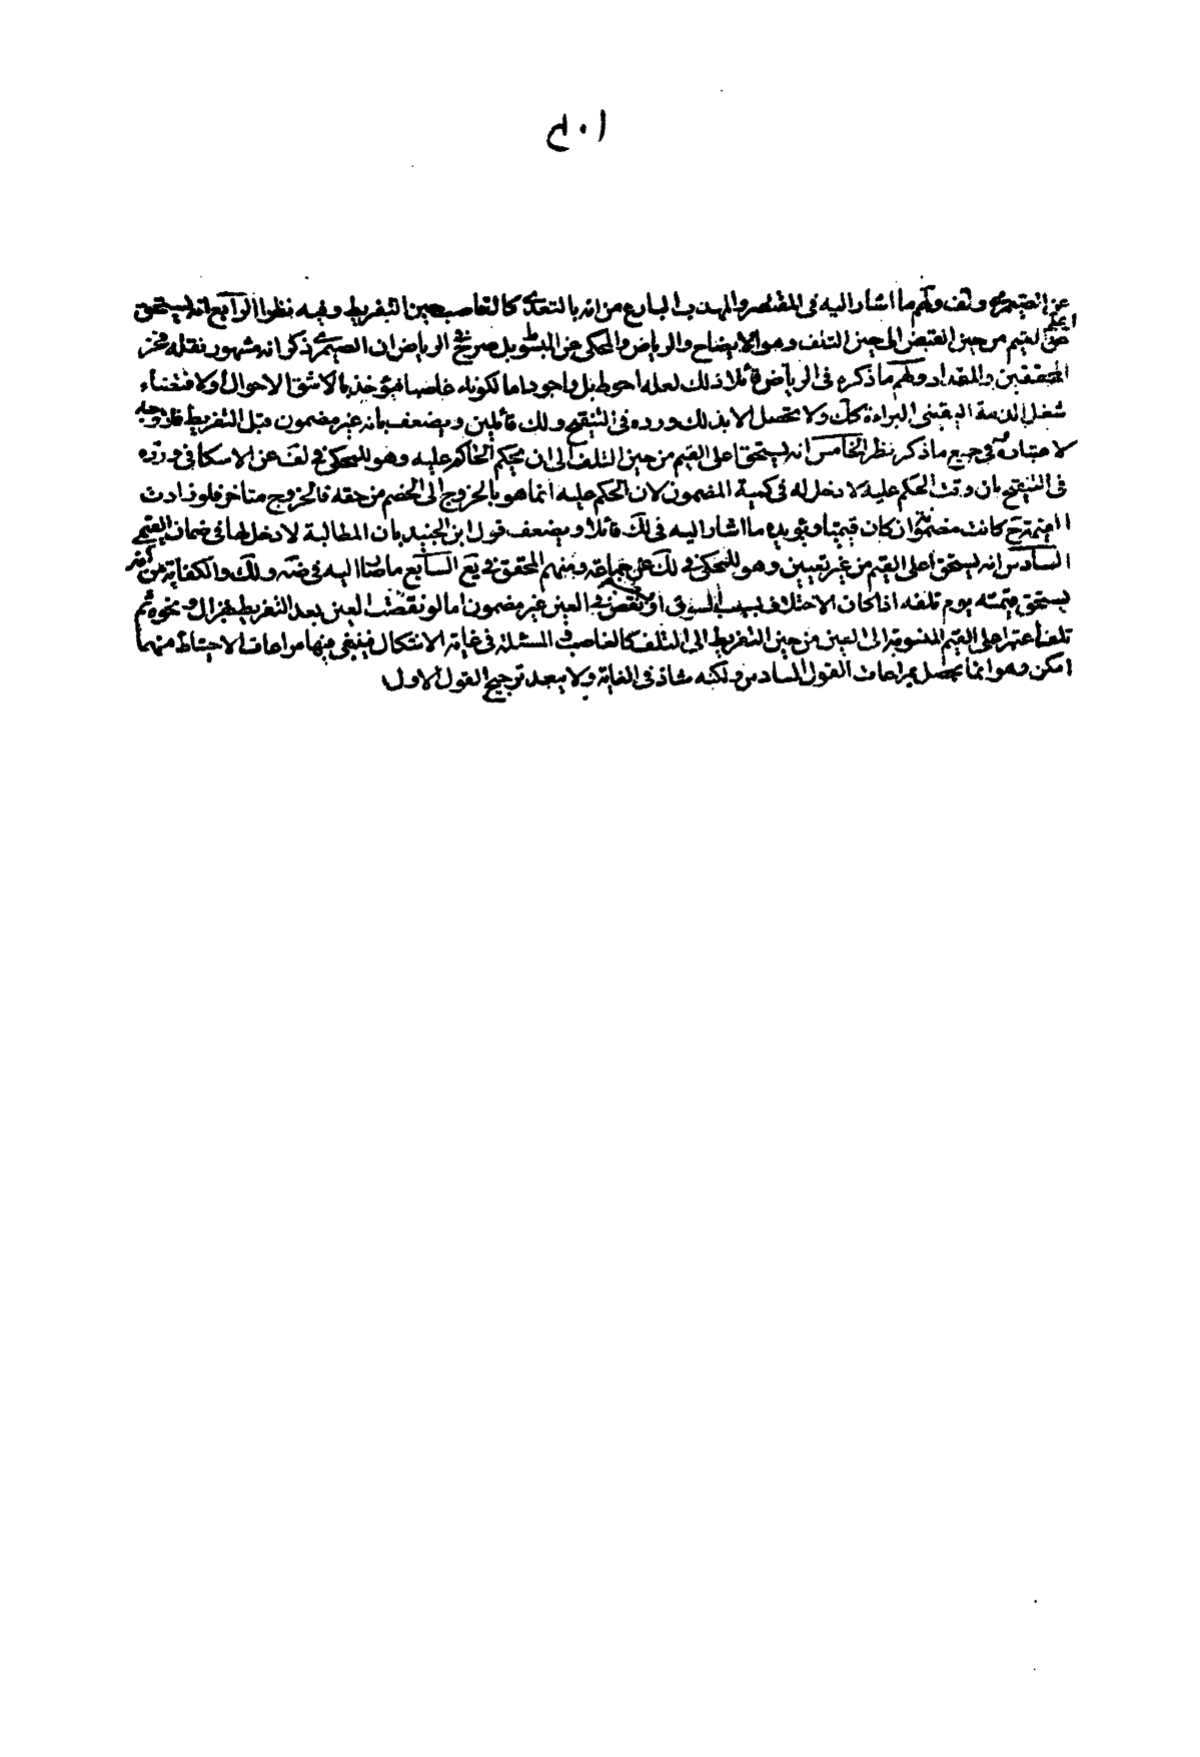 ٤٠١
عن الصيمري ولهم ما اشار اليه في المقتصر والمهذب البارع من انه بالتعدي كالغاصب حين التفريط وفيه نظر الرابع انه يستحق
اعلى القيم من حين القبض الى حين التلف وهو للايضاح والرياض والمحكي عن المبسوط بل صرح في الرياض ان الصيمري ذكر انه مشهور نقله فخر
المحققين والمقداد ولهم ما ذكره في الرياض قائلا ذلك لعله احوط بل واجود اما لكونه غاصبا فيؤخذ بالاشق الاحوال او لاقتضاء
شغل الذمة اليقيني البراءة كك ولا تحصل الا بذلك ورده في التنقيح ولك قائلين ويضعف بانه غير مضمون قبل التفريط فلا وجه
لاعتباره وفي جميع ما ذكر نظر الخامس انه يستحق اعلى القيم من حين التلف الى ان يحكم الحاكم عليه وهو للمحكي في لف عن الاسكافي ورده
في التنقيح بان وقت الحكم عليه لا دخل له في كمية المضمون لان الحكم عليه انما هو بالخروج الى الخصم من حقه فالخروج متاخر فلو زادت
كانت مضمونة وان كان قيميا ويؤيده ما اشار اليه في لك قائلا ويضعف قول ابن الجنيد بان المطالبة لا دخل لها في ضمان القيمي
السادس انه يستحق اعلى القيم من غير تعيين وهو للمحكي في لك عن جماعة ومنهم المحقق في يع السابع ما صار اليه في ضه ولك والكفاية من انه
يستحق قيمته يوم تلفه اذا كان الاختلاف بسبب السوق او نقص في العين غير مضمون اما لو نقصت العين بعد التفريط بهزال ونحوه ثم
تلف اعتبر اعلى القيم المنسوبة الى العين من حين التفريط الى التلف كالغاصب فالمسئلة في غاية الاشكال فينبغي فيها مراعات الاحتياط مهما
امكن وهو انما يحصل بمراعات القول السادس ولكنه شاذ في الغاية ولا يبعد ترجيح القول الاول